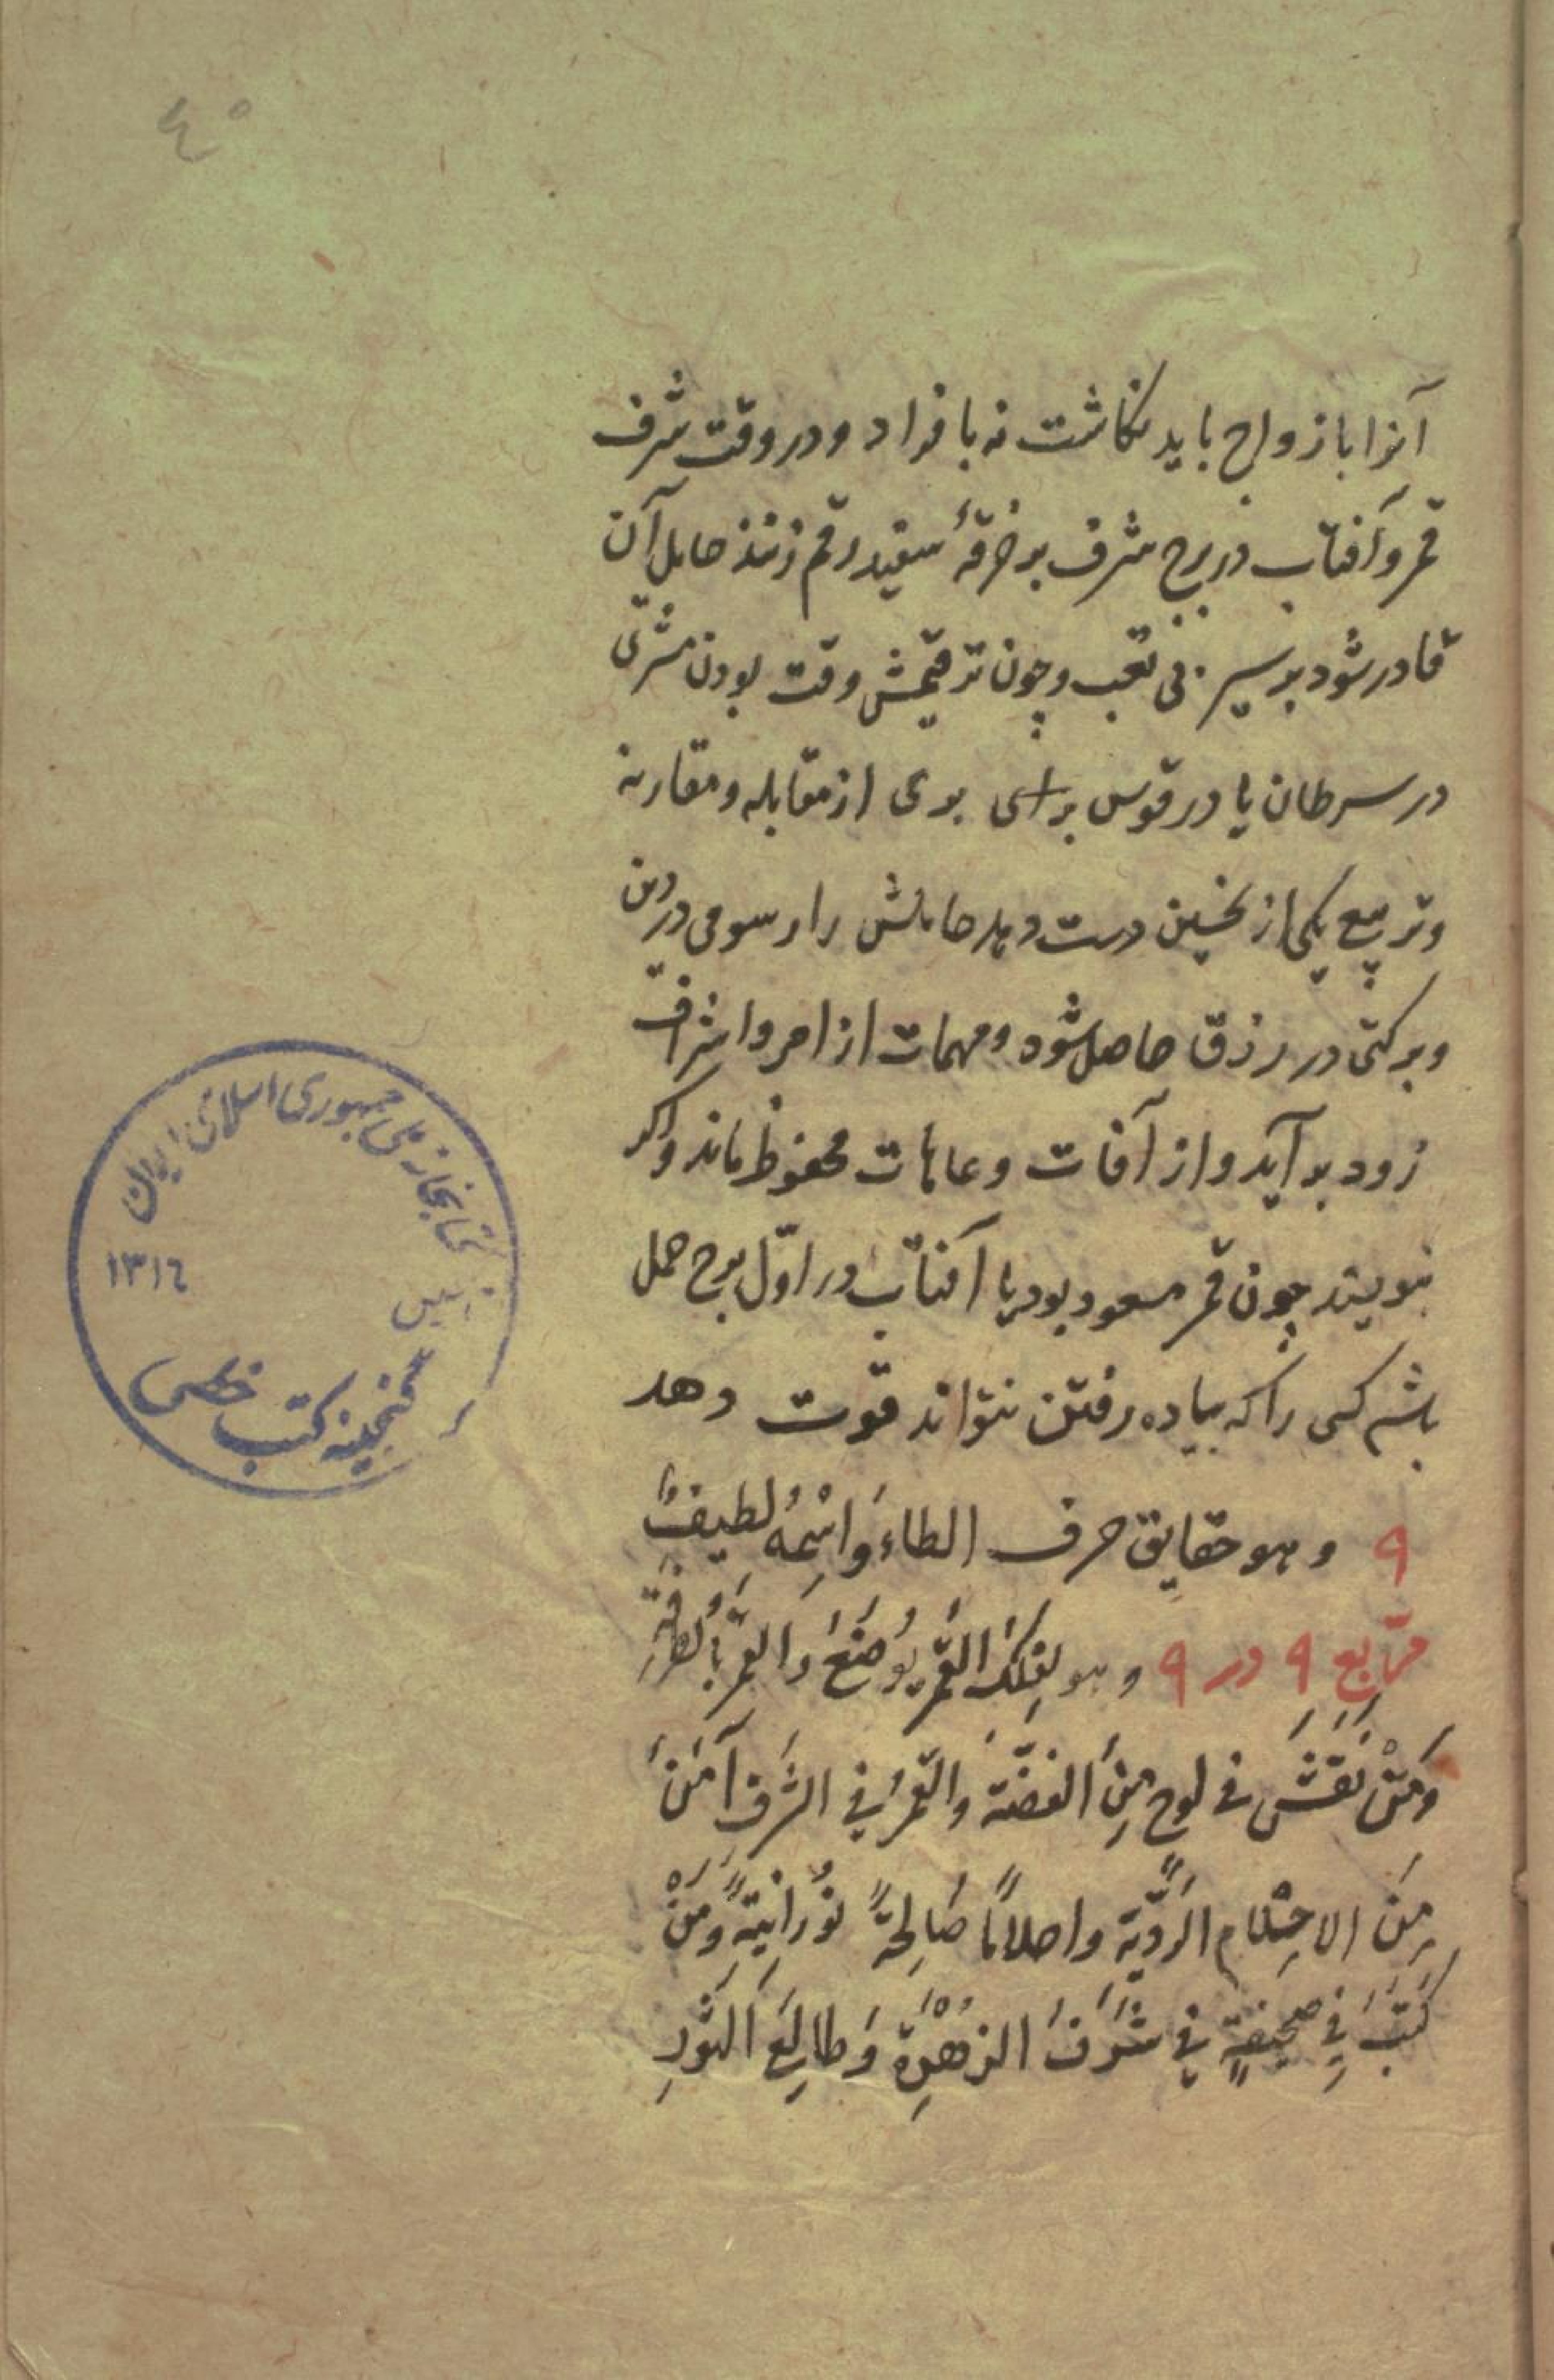 ٤٥
آنرا با زواج باید نگاشت نه با فراد و در وقت شرف
قمر و آفتاب در برج شرف بر خرقهٔ سفید رقم زنند حامل آن
قادر شود بر سیر بی تعب و چون ترقیمش وقت بودن مشتری
در سرطان یا در قوس براسی بری از مقابله و مقارنه
و تربیع یکی از نحسین دست دهد حاملش را رسومی در دین
و برکتی در رزق حاصل شود و مهمات از امر و اشراف
زود بر آید و از آفات و عاهات محفوظ ماند و اگر
بنویسند چون قمر مسعود بود یا آفتاب در اوّل برج حمل
باشد کسی را که پیاده رفتن نتواند قوت دهد
۹ و هو حقایق حرف الطاء وَاسْمُهُ لطیفٌ
مربّع ۹ در ۹ و هو لِفَلَکَ القَمَر یُوضَعُ وَ القمرُ بالطرفةِ
وَ مَنْ نَقَشَ فی لوح مِنَ الفضّة وَ القَمرُ فی الشَرفِ آمَنَ
مِنَ الاحتِلام الرَدیّة و احلامًا صَالِحةً نُورانِیةً وَ مَنْ
کَتَبَ فِی صَحیفةٍ فِی شَرَفَ الزهْرَة وَ طالِعَ الثَورِ
کتابخانه ملی جمهوری اسلامی ایران
۱۳۱٦
گنجینه کتب خطی